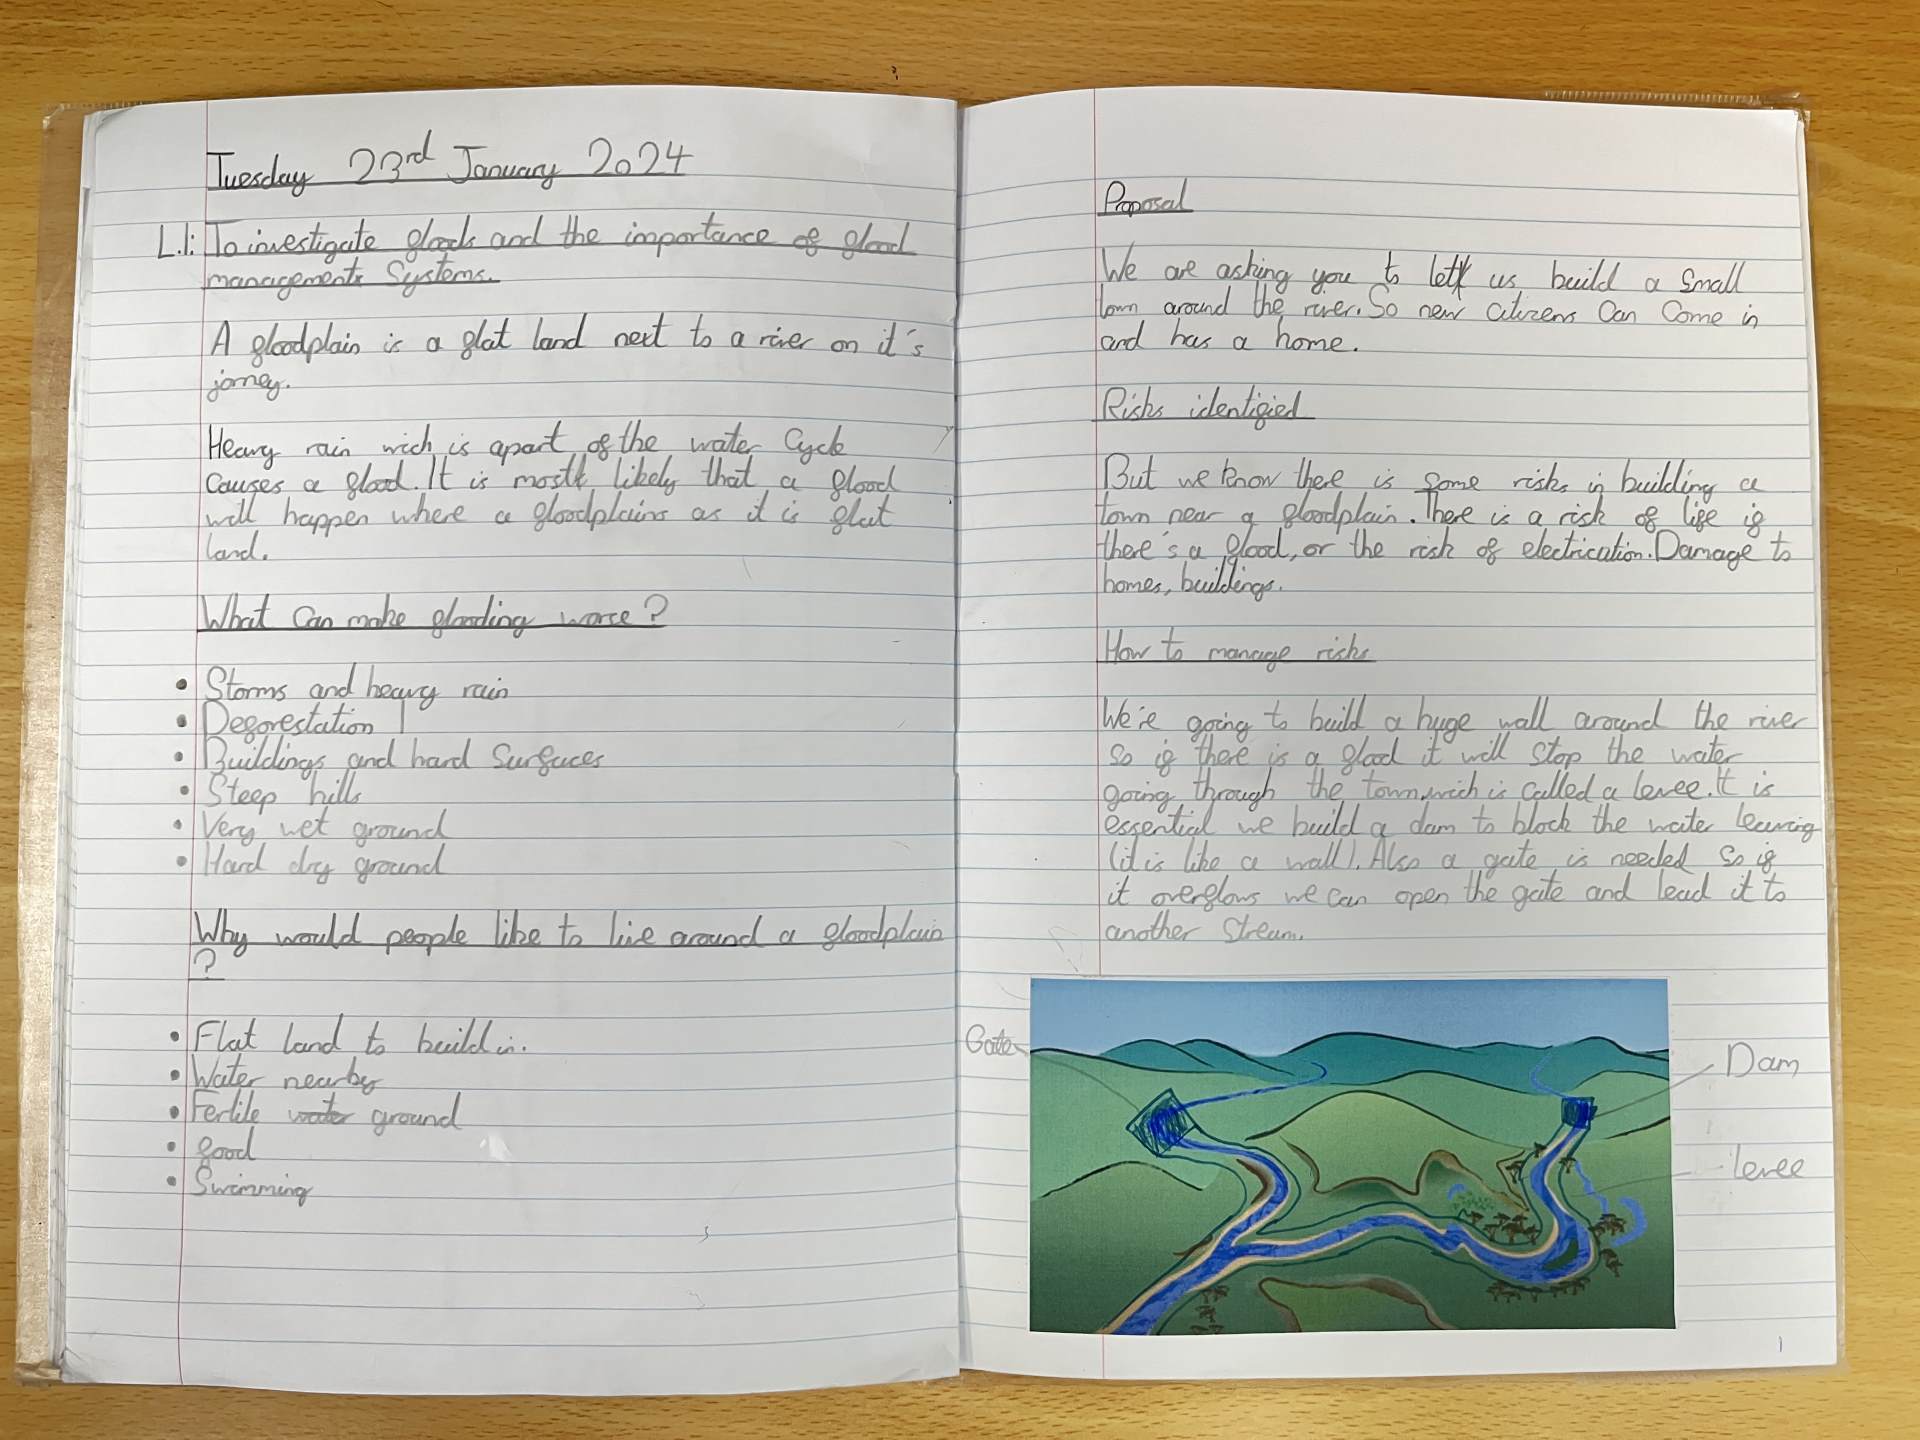 Tuesday 23rd January 2024
L.I: To investigate floods and the importance of flood
managements Systems.
A floodplain is a flat land next to a river on it's
jorney.
Heavy rain wich is apart of the water Cycle
Causes a flood. It is most likely that a flood
will happen where a floodplains as it is flat
land.
What Can make flooding worse?
• Storms and heavy rain
• Deforestation
• Buildings and hard Surfaces
• Steep hills
• Very wet ground
• Hard dry ground
Why would people like to live around a floodplain
?
• Flat land to build in.
• Water nearby
• Fertile water ground
• food
• Swimming
Proposal
We are asking you to let us build a Small
town around the river. So new Citizens Can Come in
and has a home.
Risks identified
But we know there is some risks in building a
town near a floodplain. There is a risk of life if
there's a flood, or the risk of electrication. Damage to
homes, buildings.
How to manage risks
We're going to build a huge wall around the river
so if there is a flood it will Stop the water
going through the town, wich is Called a levee. It is
essential we build a dam to block the water leaving
(it is like a wall). Also a gate is needed So if
it overflows we can open the gate and lead it to
another Stream.
Gate
Dam
levee